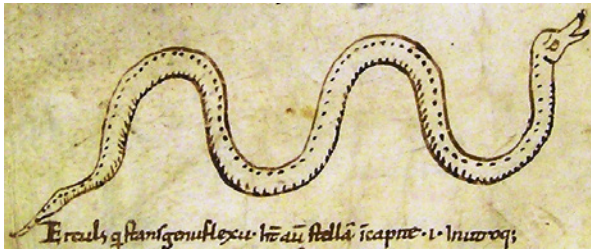 Ercules q̄ stans genuflexu · ħt aū stellā ī capite · i · In utroq;